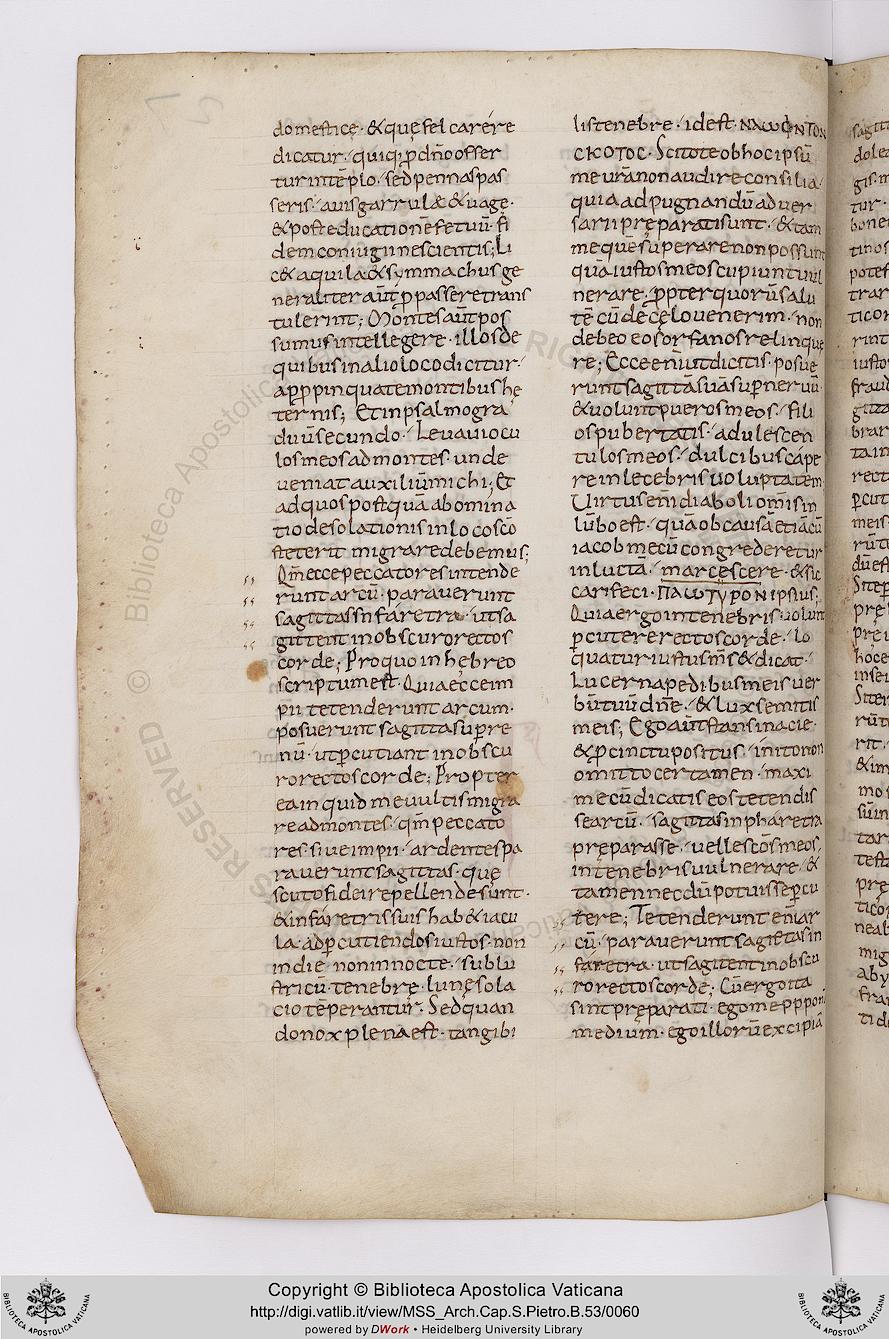 domesticę · & quę fel carére
dicatur · quiq; p dño offer
tur in tēplo · sed pennas pas
seris · avis garrulæ & uagę ·
& post educationē fetuū · fi
dem coniugii nescientis; Li
c& aquila & symmachus ge
neraliter aūt p passere trans
tulerint; Montes aūt pos
sumus intellegere · illos de
quibus in alio loco dicitur ·
appinquate montibus hę
ternis; Et in psalmo gra
duū secundo · Levavi ocu
los meos ad montes · unde
veniat auxiliū michi; Et
ad quos postquā abomina
tio desolationis in loco sco
steterit migrare debemus;
Qm̄ ecce peccatores intende
runt arcū · paraverunt
sagittas in fáretra · ut sa
gittent in obscuro rectos
corde; Pro quo in hębreo
scriptum est · Quia ecce im
pii tetenderunt arcum ·
posuerunt sagittā supre
nū · ut pcutiant in obscu
ro rectos corde; Propter
ea inquid me vultis migra
re ad montes · qm̄ peccato
res · sive impii · ardentes pa
raverunt sagittas · quę
scuto fidei repellendę sunt ·
& in fáretris suis hab& iacu
la · ad pcutiendos iustos · non
in die · non in nocte · sublu
stri cū tenebrę lunę sola
cio tēperantur · Sed quan
do nox plena est · tangibi
lis tenebre · id est · ΝΑѠΦΝΤΟΝ
CΚΟΤΟC · Scitote ob hoc ipsū
me urān non audire consilia ·
quia ad pugnandū adver
sarii pręparati sunt · & tam
me quē superare non possunt
quā iustos meos cupiunt vul
nerare · ppter quorū salu
tē cū de cęlo venerim · non
debeo eos orfanos relinque
re; Ecce enī ut dicitis · posue
runt sagittā suā super nervū ·
& volunt pueros meos · fili
os pubertatis · adulescen
tulos meos · dulcibus cape
re inlecebris voluptatem
Virtus enī diaboli om̄is in
lūbo est · quā ob causā etiā cū
iacob mecū congrederetur
in luctā · marcescere · & sic
carifeci · ΠΛΑΤΥΡΟΝ ipsius;
Quia ergo in tenebris uolunt
pcutere rectos corde · lo
quatur iustus m̄s & dicat ·
Lucerna pedibus meis ver
bū tuū dn̄e · & lux semitis
meis; Ego aūt stans in acie ·
& pcinctu positus · in itonon
omitto certamen · maxi
me cū dicatis eos tetendis
se arcū · sagittas in pharetra
pręparasse · uelle scōs meos ·
in tenebris uulnerare · &
tamen necdū potuisse pcu
tere; Tetenderunt enī ar
cū · paraverunt sagittas in
fáretra · ut sagitent in obscu
ro rectos corde; Cū ergo ita
sint pręparati · ego me pp poni
medium · ego illorū excipiā
Copyright © Biblioteca Apostolica Vaticana
http://digi.vatlib.it/view/MSS_Arch.Cap.S.Pietro.B.53/0060
powered by DWork • Heidelberg University Library